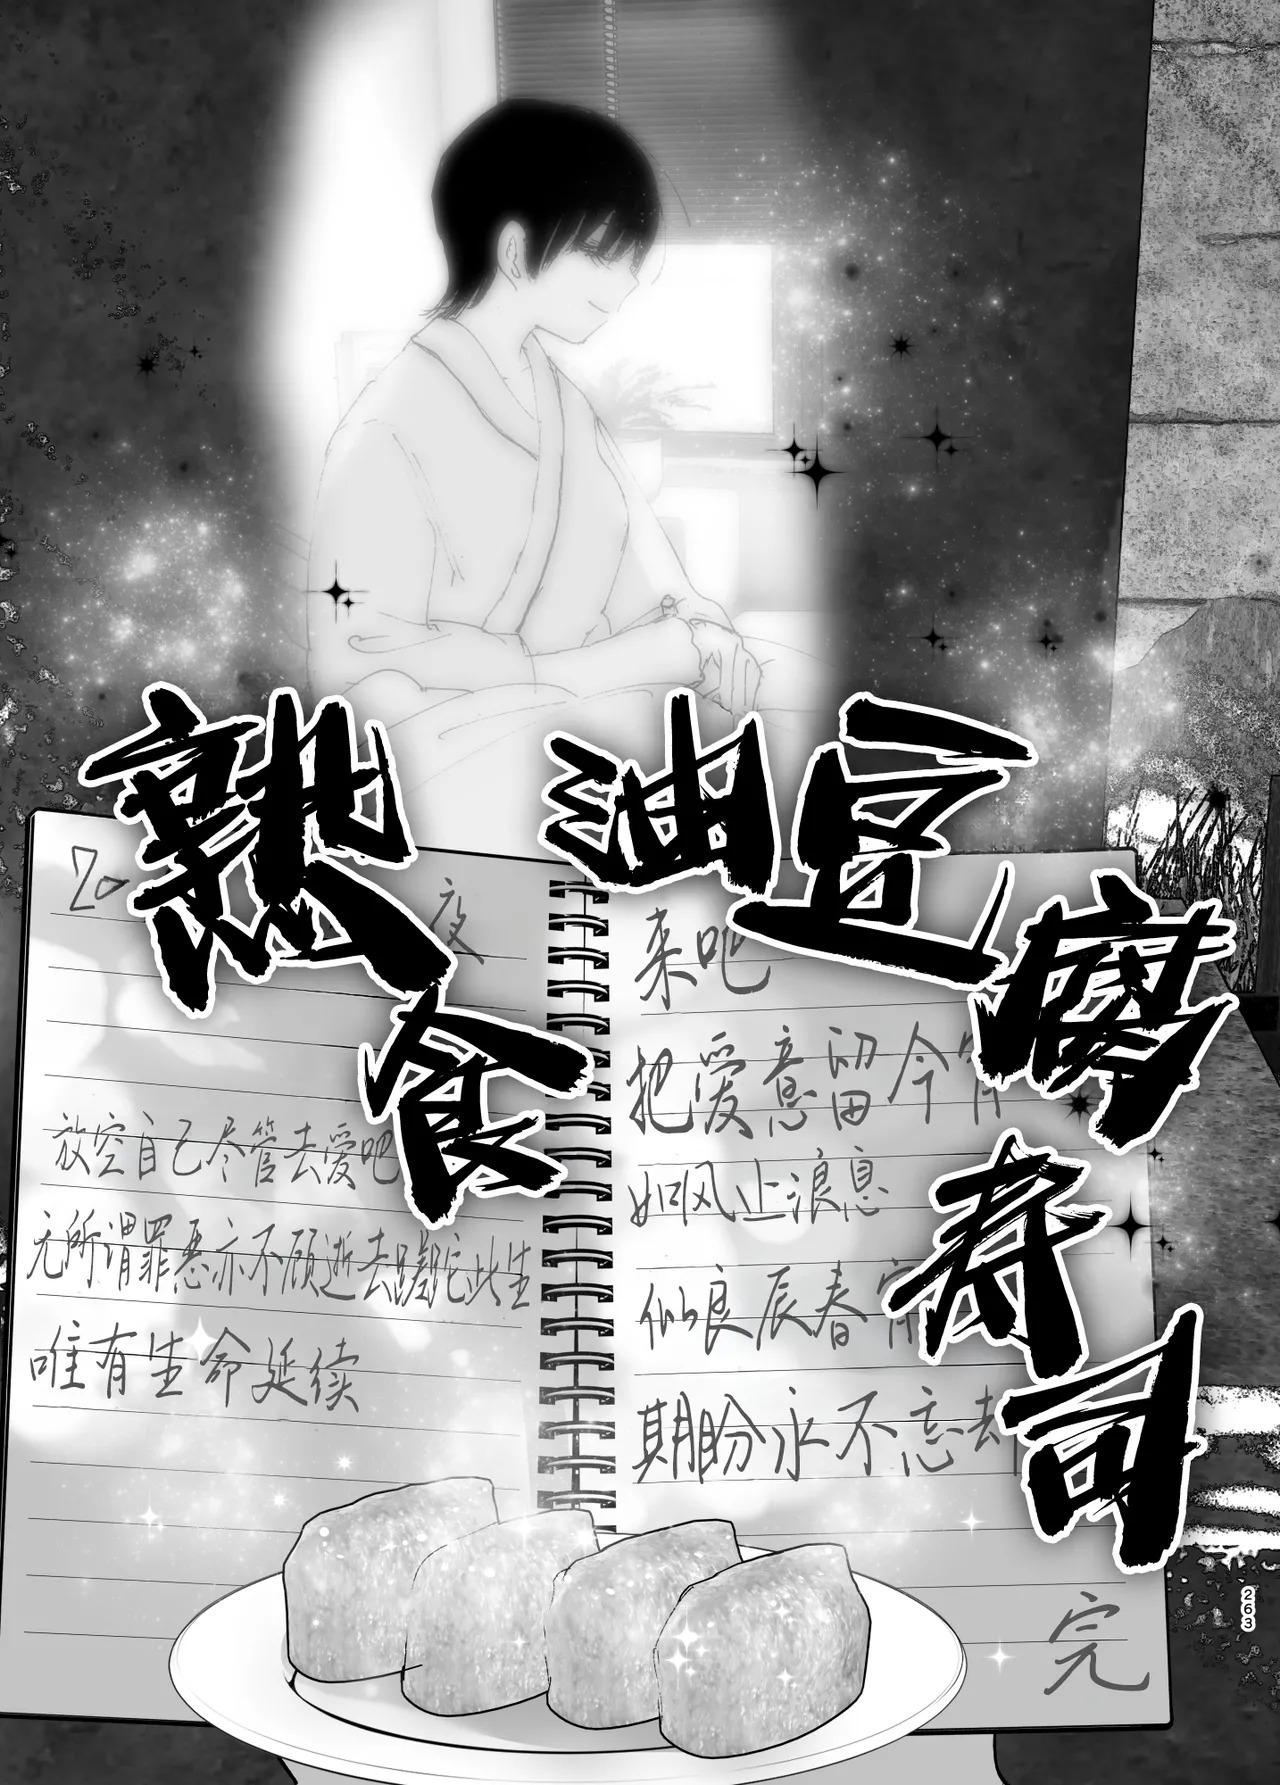 熟食
油豆腐寿司
20
夜
放空自己尽管去爱吧
无所谓罪恶亦不顾逝去蹉跎此生
唯有生命延续
来吧
把爱意留今宵
如风止浪息
似良辰春宵
期盼永不忘去
完
263